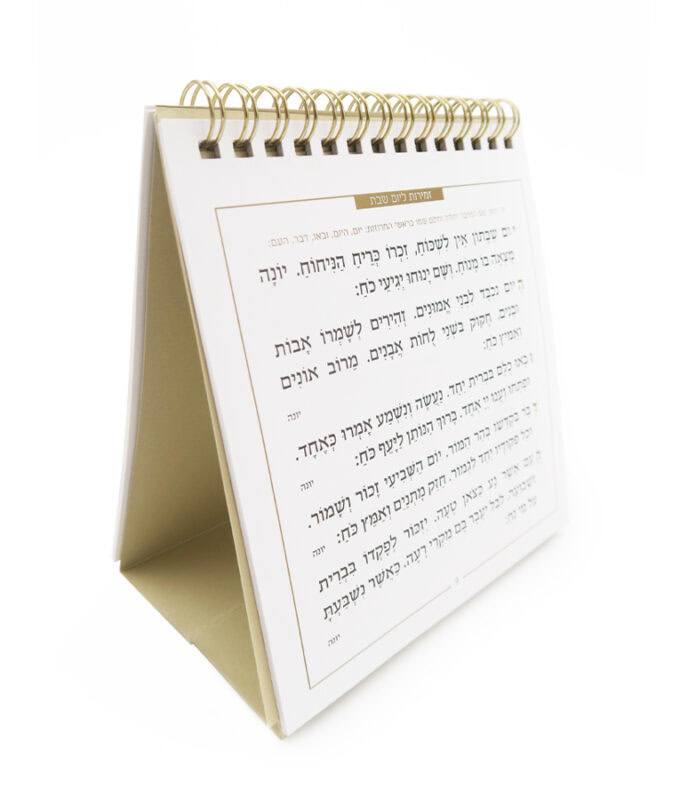 זמירות ליום שבת
שמו בראשי החרוזות: יום, היום, ובאו, דבר, העם:
יוֹם שַׁבָּתוֹן אֵין לִשְׁכּוֹחַ, זִכְרוֹ כְּרֵיחַ הַנִּיחוֹחַ. יוֹנָה
מָצְאָה בוֹ מָנוֹחַ. וְשָׁם יָנוּחוּ יְגִיעֵי כֹחַ:
הַיּוֹם נִכְבָּד לִבְנֵי אֱמוּנִים. זְהִירִים לְשָׁמְרוֹ אָבוֹת
וּבָנִים. חָקוּק בִּשְׁנֵי לֻחוֹת אֲבָנִים. מֵרוֹב אוֹנִים
וְאַמִּיץ כֹּחַ:
יונה
וּבָאוּ כֻלָּם בִּבְרִית יַחַד. נַעֲשֶׂה וְנִשְׁמַע אָמְרוּ כְּאֶחָד.
וּפָתְחוּ וְעָנוּ יְיָ אֶחָד. בָּרוּךְ הַנּוֹתֵן לַיָּעֵף כֹּחַ:
יונה
דִּבֶּר בְּקָדְשׁוֹ בְּהַר הַמּוֹר. יוֹם הַשְּׁבִיעִי זָכוֹר וְשָׁמוֹר.
וְכָל פִּקּוּדָיו יַחַד לִגְמוֹר. חַזֵּק מָתְנַיִם וְאַמֵּץ כֹּחַ:
יונה
הָעָם אֲשֶׁר נָע כַּצֹּאן תָּעָה. יִזְכּוֹר לְפָקְדוֹ בִּבְרִית
וּשְׁבוּעָה. לְבַל יַעֲבָר בָּם מִקְרֵי רָעָה. כַּאֲשֶׁר נִשְׁבַּעְתָּ
עַל מֵי נֹחַ:
יונה
9